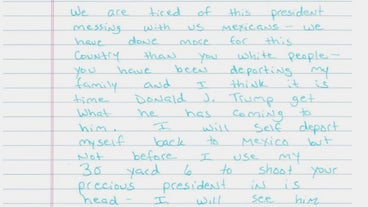 We are tired of this president
messing with us Mexicans - we
have done more for this
Country than you white people -
you have been deporting my
family and I think it is
time Donald J. Trump get
what he has coming to
him. I will self deport
myself back to Mexico but
not before I use my
30 yard 6 to shoot your
precious president in is
head - I will see him